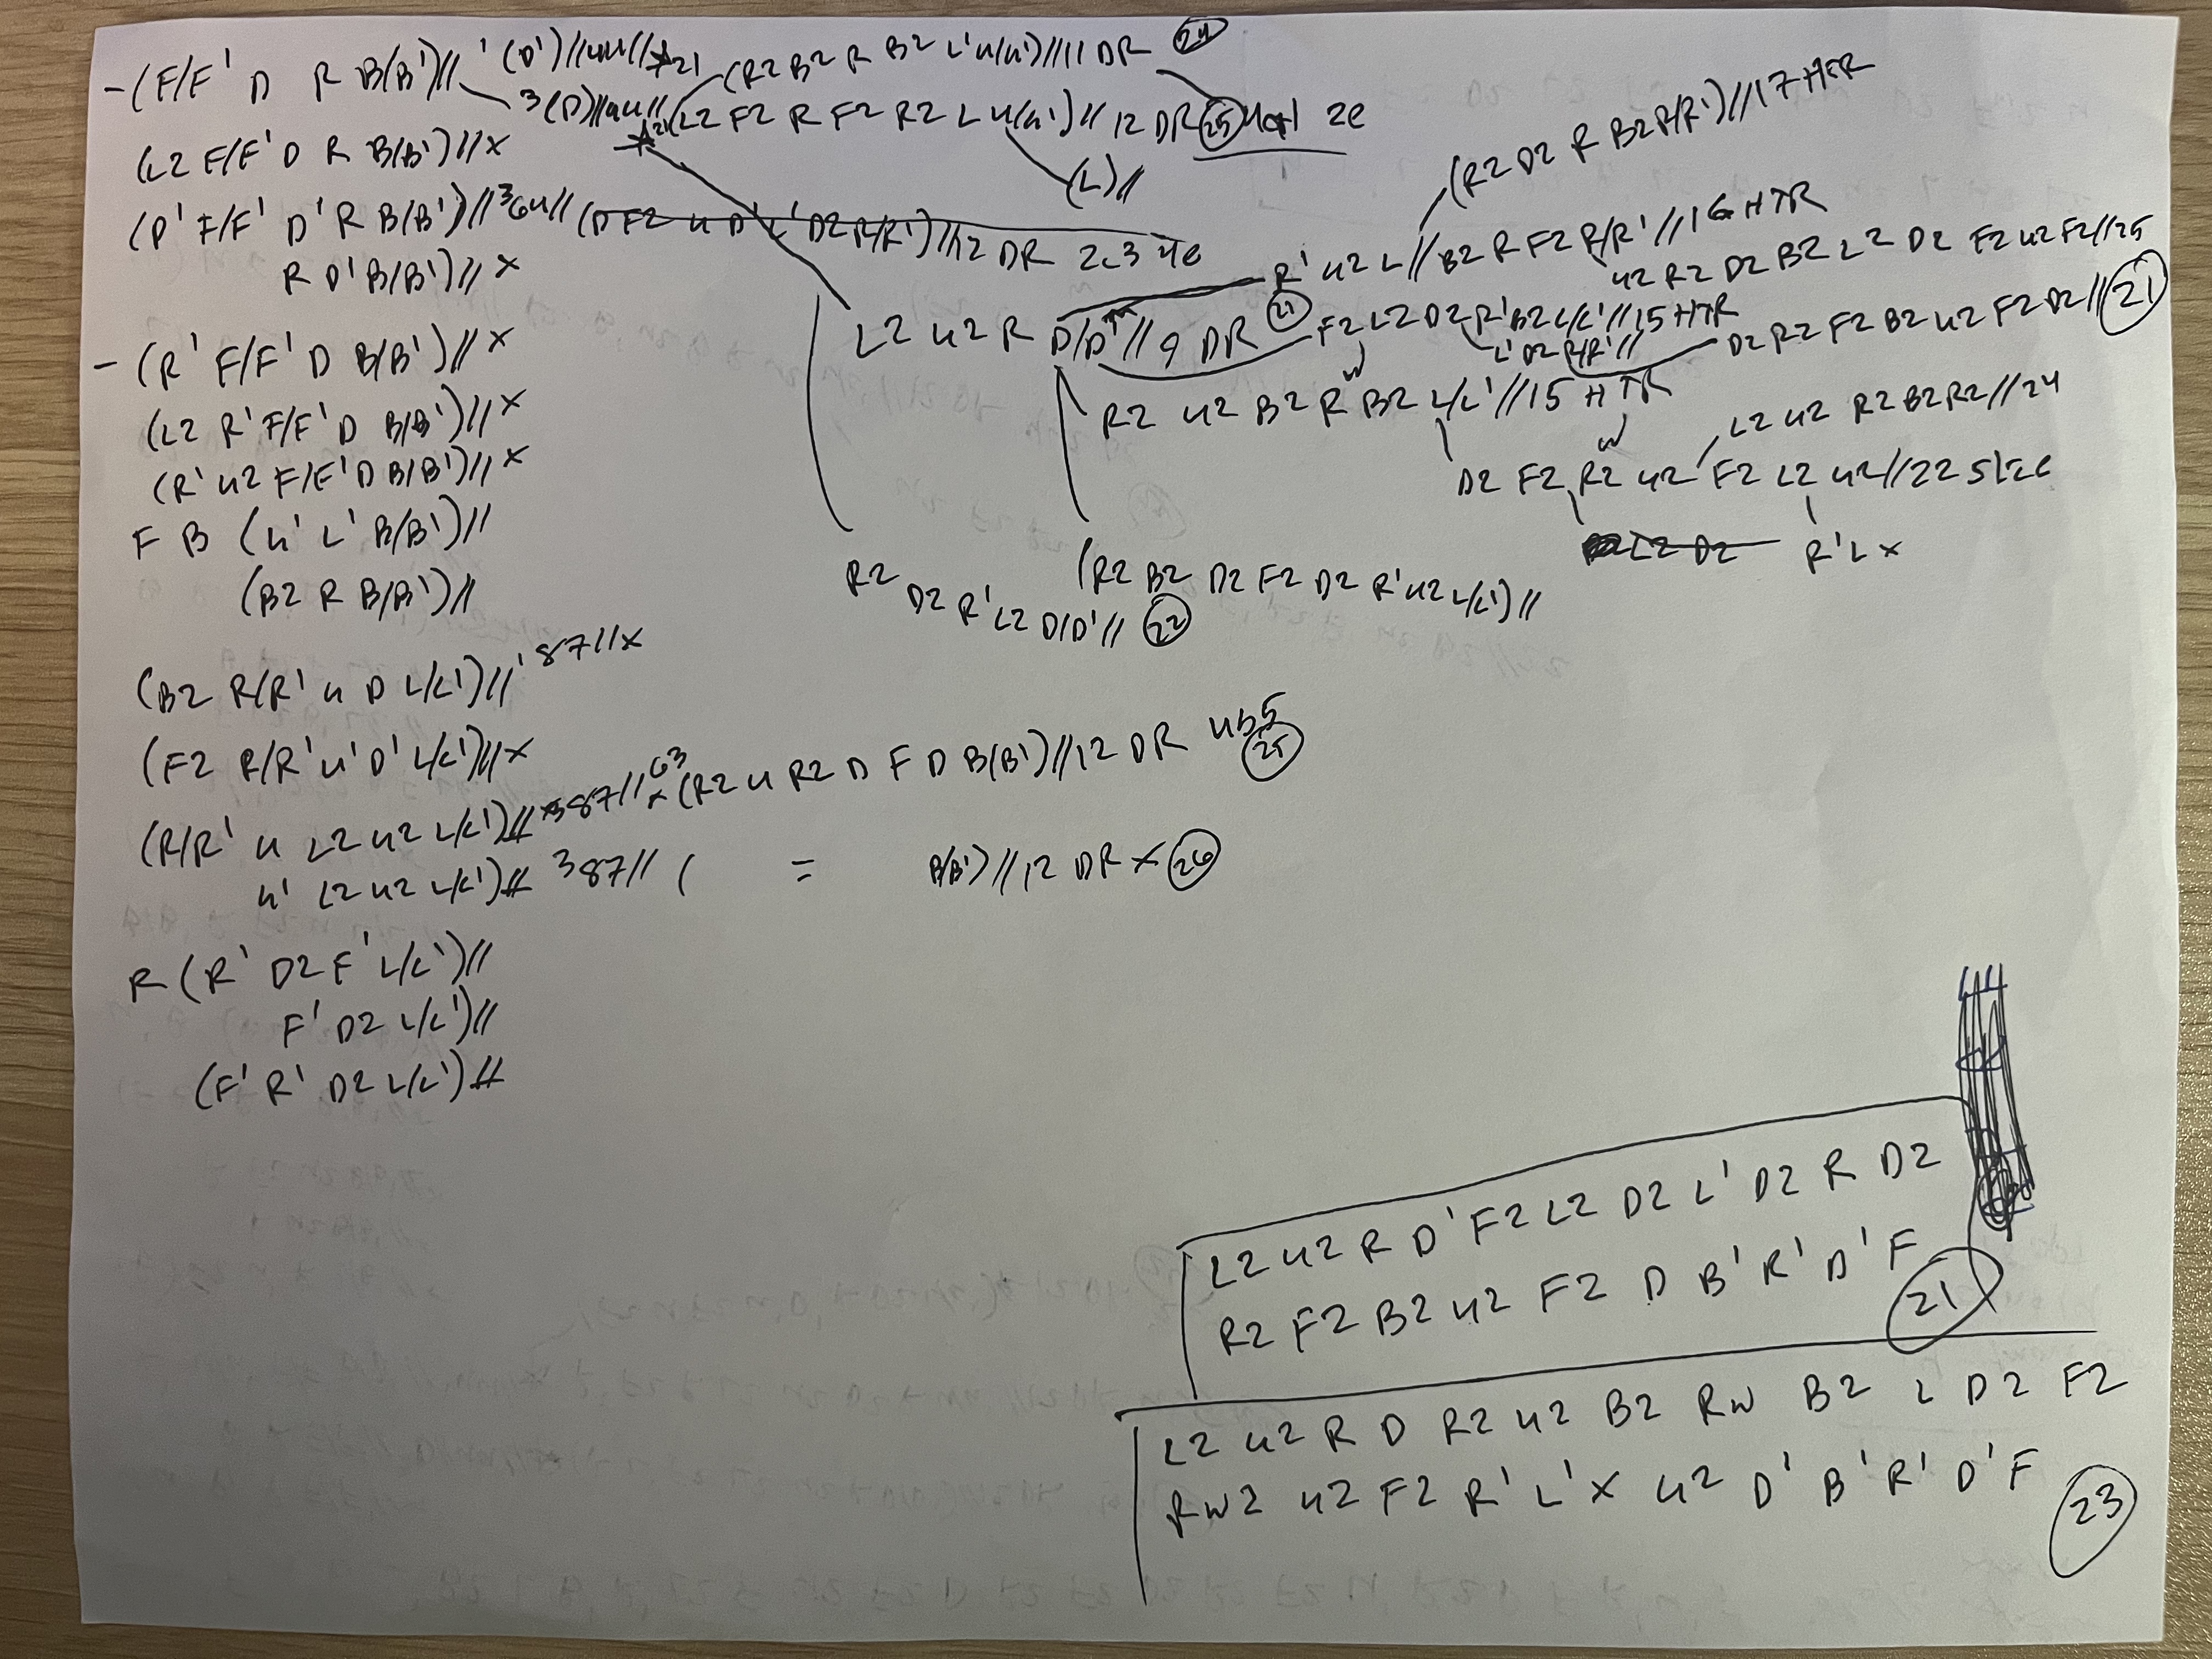 - (F/F' D R B/B')// '(D')//4u//*21 (R2 B2 R B2 L' u/u')//11 DR 24
3(D)//4u// *21 (L2 F2 R F2 R2 L u/u')//12 DR 25 2e
(L2 F/F' D R B/B')//x
(L)//
(R2 D2 R B2 R/R')//17 HTR
(D' F/F' D' R B/B')//3 6u// (D F2 u D' L' D2 R/R')//12 DR 2c3 4e
R D' B/B')//x
R' u2 L//B2 R F2 R/R'//16 HTR
u2 R2 D2 B2 L2 D2 F2 u2 F2//25
L2 u2 R D/D'//9 DR 21 F2 L2 D2 R' B2 L/L'//15 HTR
L' D2 R/R'//
D2 R2 F2 B2 u2 F2 D2//21
- (R' F/F' D B/B')//x
R2 u2 B2 R w B2 L/L'//15 HTR
(L2 R' F/F' D B/B')//x
L2 u2 R2 B2 R2//24
(R' u2 F/F' D B/B')//x
D2 F2 R2 w u2 F2 L2 u2//22 slice
F B (u' L' B/B')//
L2 D2 R' L x
(B2 R B/B')//
R2 D2 R' L2 D/D'// 22
(R2 B2 D2 F2 D2 R' u2 L/L')//
(B2 R/R' u D L/L')//' 87//x
(F2 R/R' u' D' L/L')//x
(R/R' u L2 u2 L/L')// 387// x63 (R2 u R2 D F D B/B')//12 DR 4b5 25
u' L2 u2 L/L')// 3 87// ( = B/B')//12 DR x 26
R (R' D2 F' L/L')//
F' D2 L/L')//
(F' R' D2 L/L')//
L2 u2 R D' F2 L2 D2 L' D2 R D2
R2 F2 B2 u2 F2 D B' R' D' F 21
L2 u2 R D R2 u2 B2 Rw B2 L D2 F2
Rw2 u2 F2 R' L' x u2 D' B' R' D' F 23